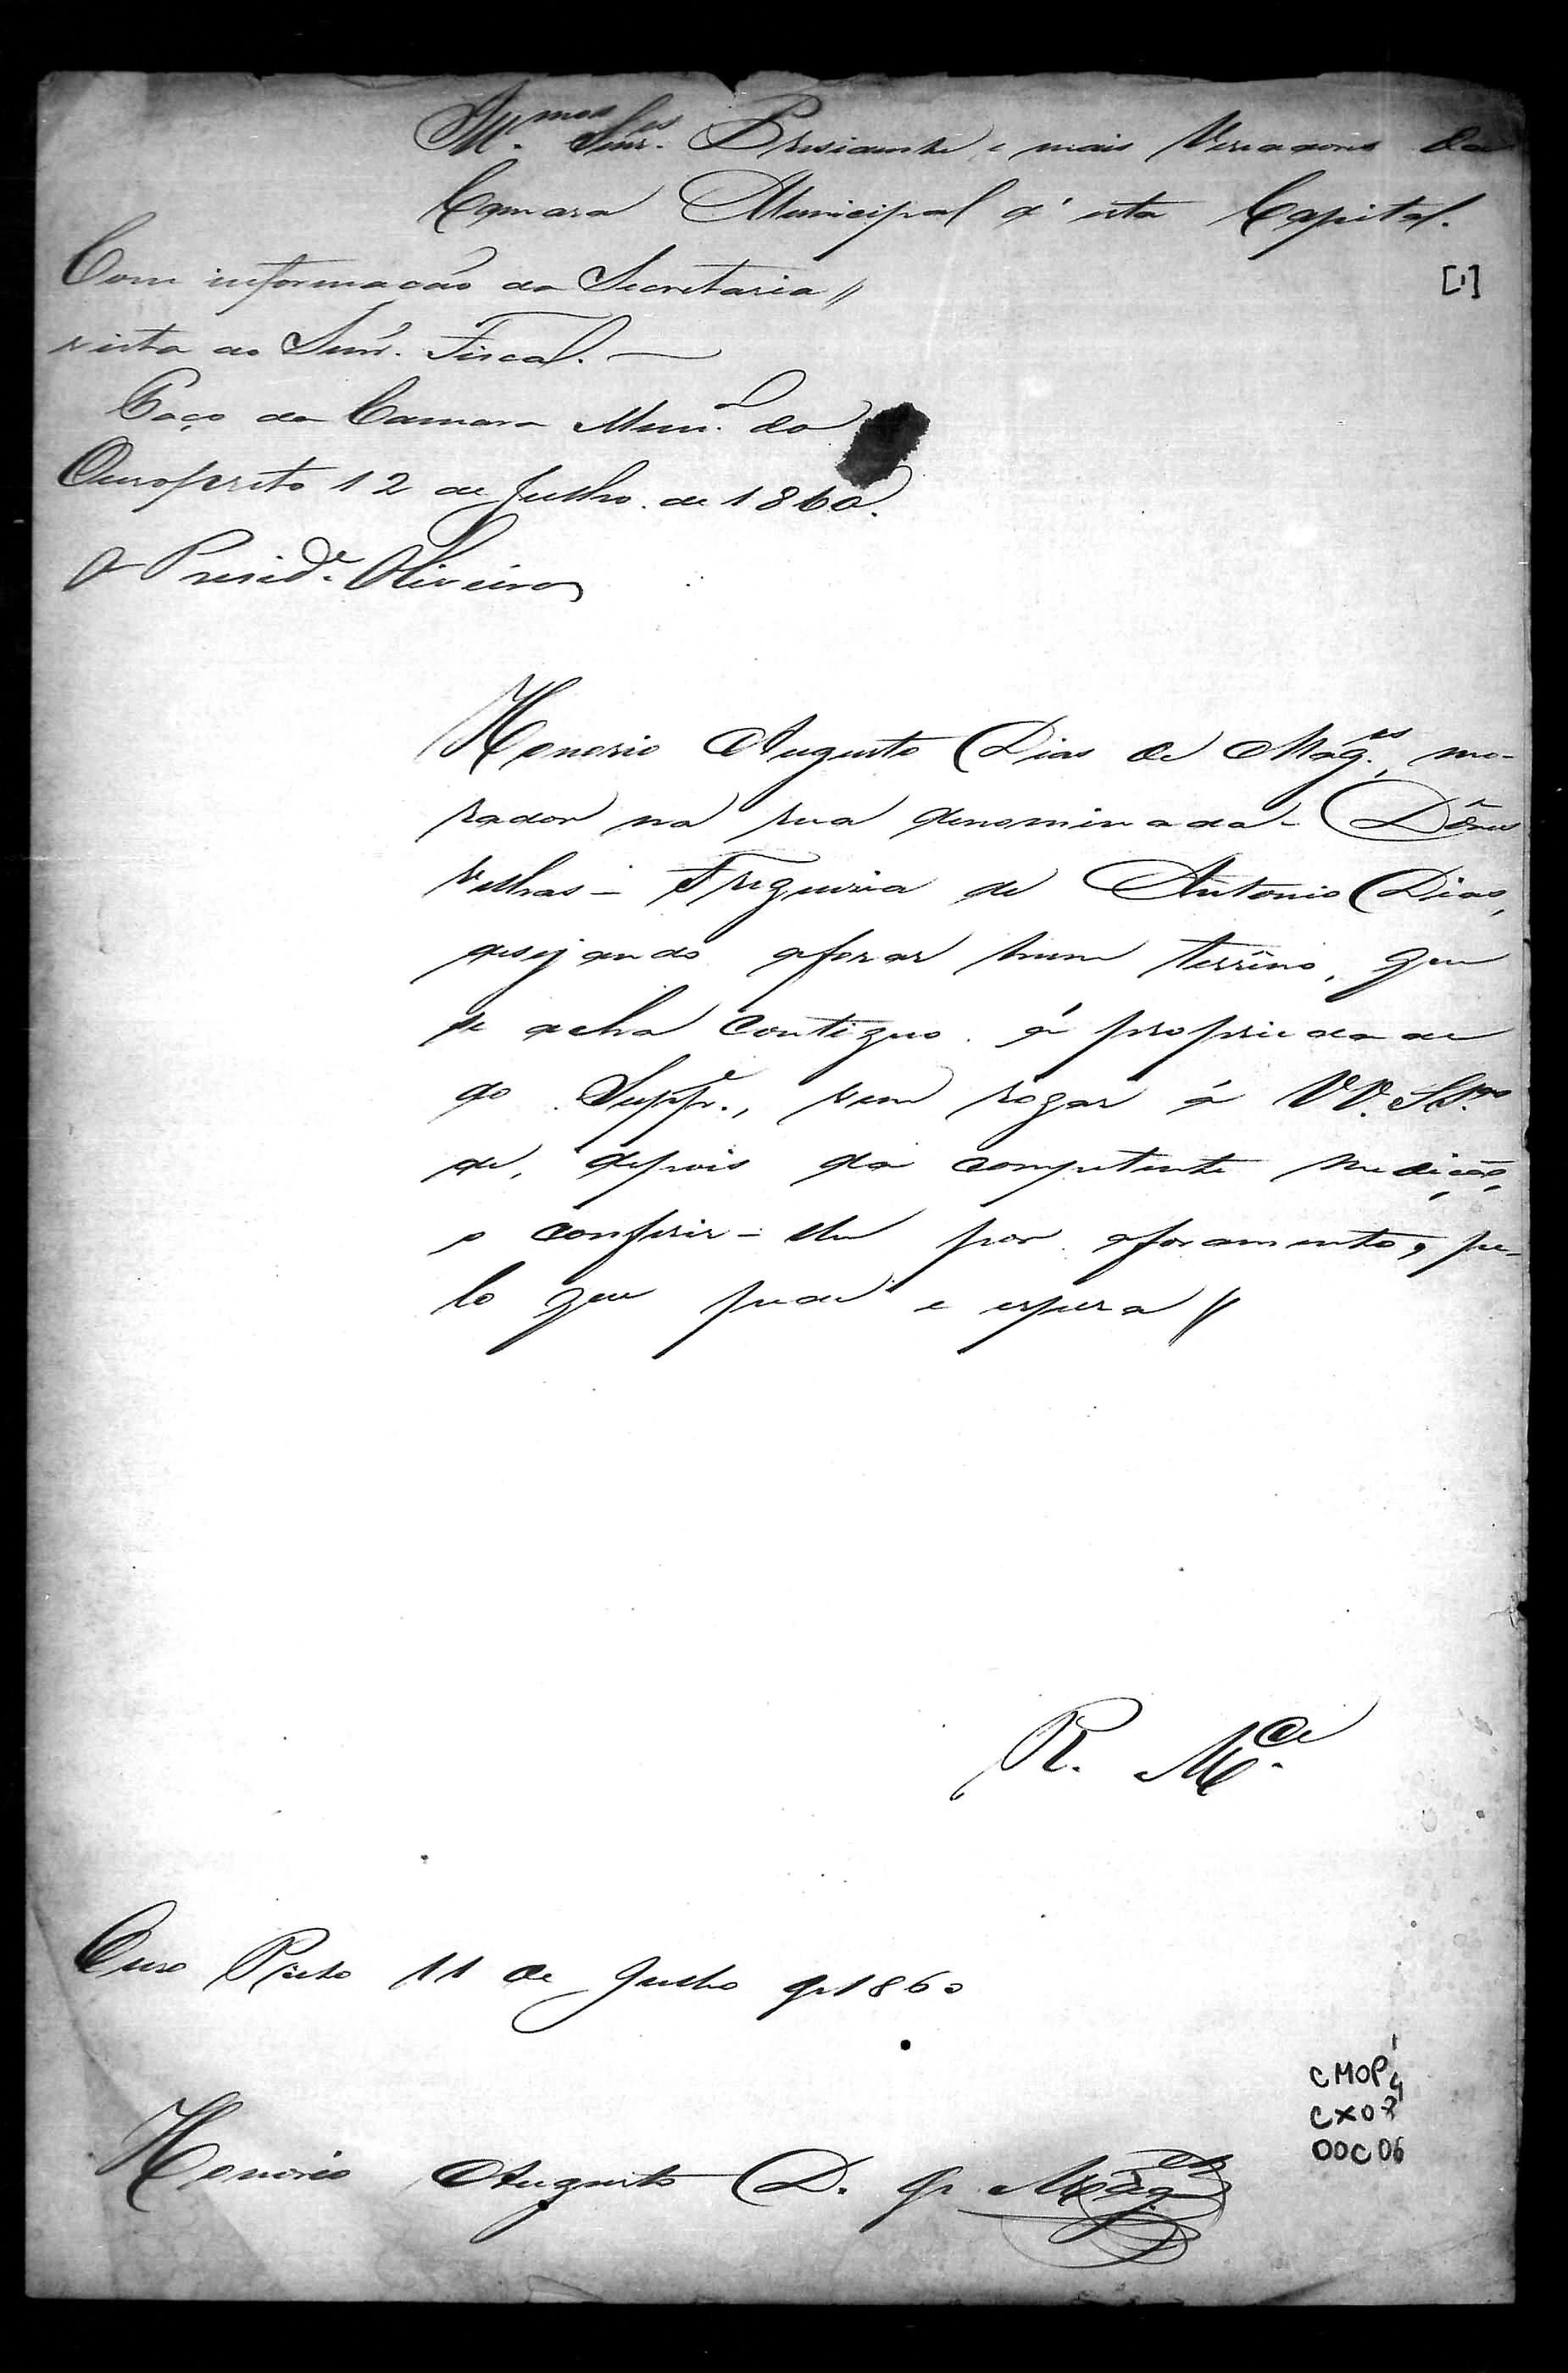 Ill.mos Snrs. Presidente e mais Vereadores da
Camara Municipal d'esta Capital.
[1]
Com informação da Secretaria //
vista ao Snr. Fiscal. —
Paço da Camara Mun.al do
Ouropreto 12 de Julho de 1860.
O Presid.e Oliveira
Honorio Augusto Dias de Mag.es, mo-
rador na rua denominada -
velhas - Freguesia de Antonio Dias,
desejando aforar hum terreno, que
se acha contiguo á propriedade
do Supp.e, vem rogar á VV. SS.as
de, depois da competente medição,
o conferir-lhe por aforamento, pe-
lo que pede e espera //
R. M.ce
Ouro Preto 11 de Julho de 1860
Honorio Augusto D. de Mag.es
CMOP 1
4
CX07
DOC 06